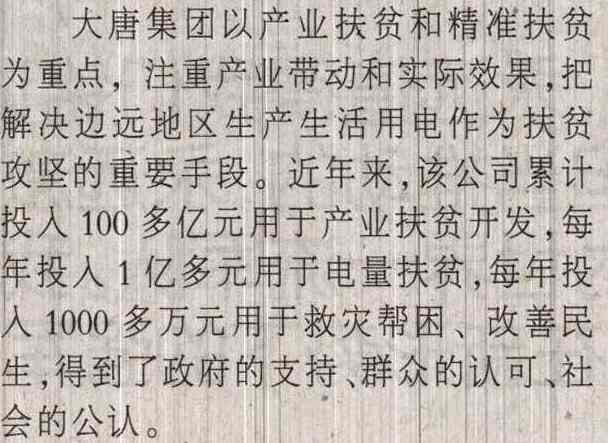 大唐集团以产业扶贫和精准扶贫
为重点，注重产业带动和实际效果，把
解决边远地区生产生活用电作为扶贫
攻坚的重要手段。近年来，该公司累计
投入100多亿元用于产业扶贫开发，每
年投入1亿多元用于电量扶贫，每年投
入1000多万元用于救灾帮困、改善民
生，得到了政府的支持、群众的认可、社
会的公认。